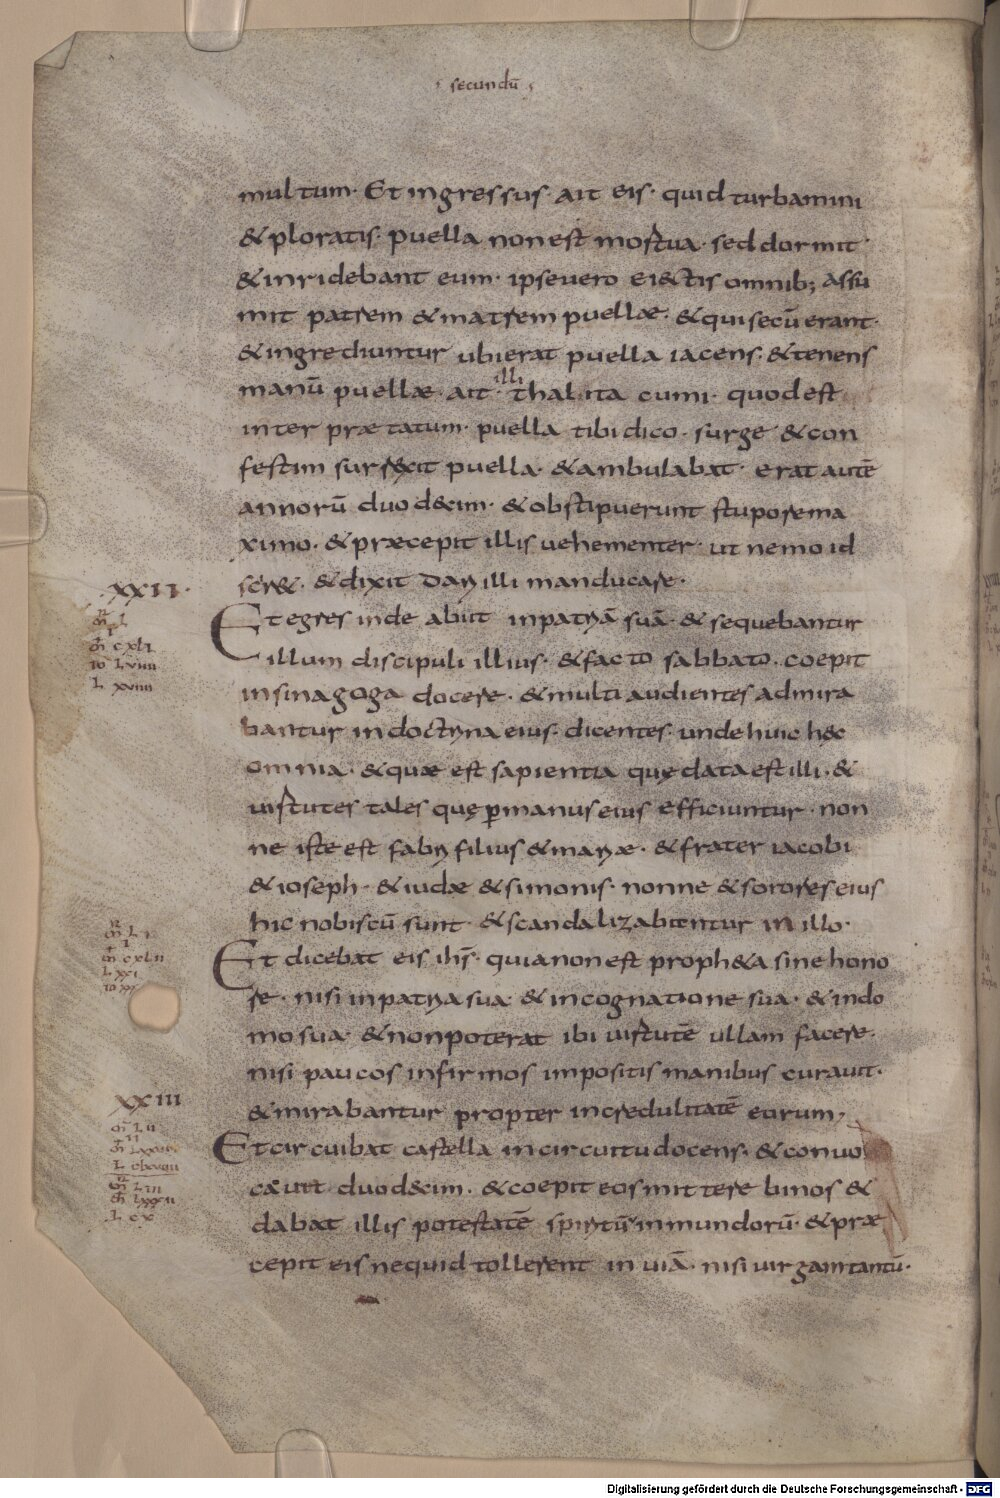 secundū
multum· Et ingressus· ait eis· quid turbamini
& ploratis· puella non est mortua· sed dormit·
& inridebant eum· ipse vero eiectis omnib; assu
mit patrem & matrem puellae· & qui secū erant·
& ingrediuntur ubi erat puella iacens· & tenens
manū puellae· ait illi· thal·ita cumi· quod est
inter prae tatum· puella tibi dico· surge & con
festim surrexit puella· & ambulabat· erat autē
annorū duod&cim· & obstipuerunt stupore ma
ximo· & praecepit illis vehementer· ut nemo id
scir&· & dixit dari illi manducare·
XXII·
Et egres inde abiit in patriā suā· & sequebantur
illum discipuli illius· & facto sabbato· coepit
in sinagoga docere· & multi audientes admira
bantur in doctrina eius· dicentes· unde huic hęc
omnia· & quae est sapientia quę data est illi· &
uirtutes tales quę p̄ manus eius efficiuntur· non
ne iste est fabri filius & mariae· & frater iacobi
& ioseph· & iudae & simonis· nonne & sorores eius
hic nobiscū sunt· & scandalizabuntur in illo·
Et dicebat eis ihs̄· quia non est proph&a sine hono
re· nisi in patria sua· & in cognatione sua· & in do
mo sua· & non poterat ibi uirtutē ullam facere·
nisi paucos infirmos impositis manibus curauit·
& mirabantur propter incredulitatē eorum,
XXIII
Et circuibat castella in circuitu docens· & conuo
cauit duod&cim· & coepit eos mittere binos &
dabat illis potestatē spirituū inmundorū· & prae
cepit eis ne quid tollerent in uiā· nisi uirgam tantū·
Digitalisierung gefördert durch die Deutsche Forschungsgemeinschaft - DFG